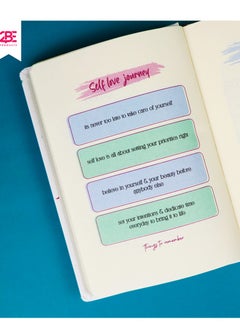 2BE
Self love journey
its never too late to take care of yourself
self love is all about setting your priorities right
believe in yourself & your beauty before
anybody else
set your intentions & dedicate time
everyday to bring it to life
Things to remember